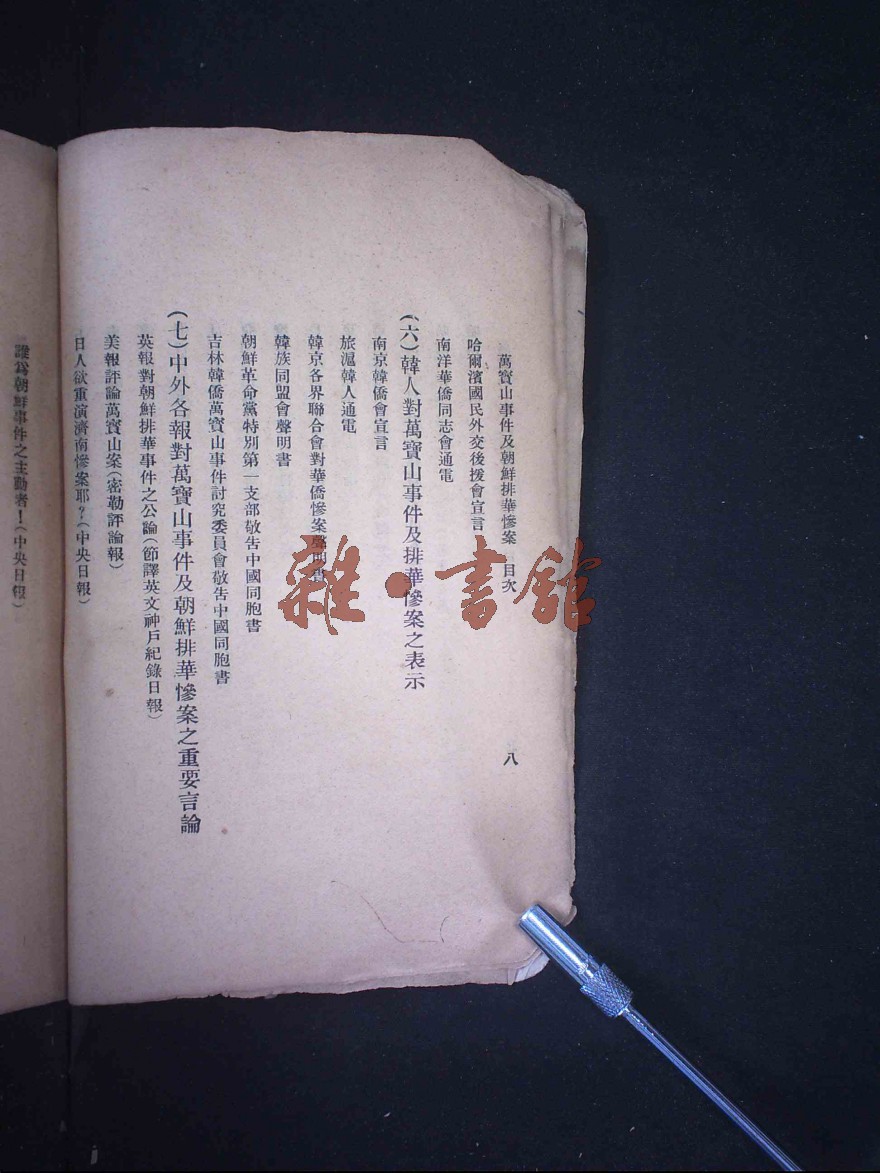 萬寶山事件及朝鮮排華慘案 目次
八
哈爾濱國民外交後援會宣言
南洋華僑同志會通電
(六)韓人對萬寶山事件及排華慘案之表示
南京韓僑會宣言
旅滬韓人通電
韓京各界聯合會對華僑慘案聲明書
韓族同盟會聲明書
朝鮮革命黨特別第一支部敬告中國同胞書
吉林韓僑萬寶山事件討究委員會敬告中國同胞書
(七)中外各報對萬寶山事件及朝鮮排華慘案之重要言論
英報對朝鮮排華事件之公論(節譯英文神戶紀錄日報)
美報評論萬寶山案(密勒評論報)
日人欲重演濟南慘案耶?(中央日報)
誰爲朝鮮事件之主動者!(中央日報)
雜·書館